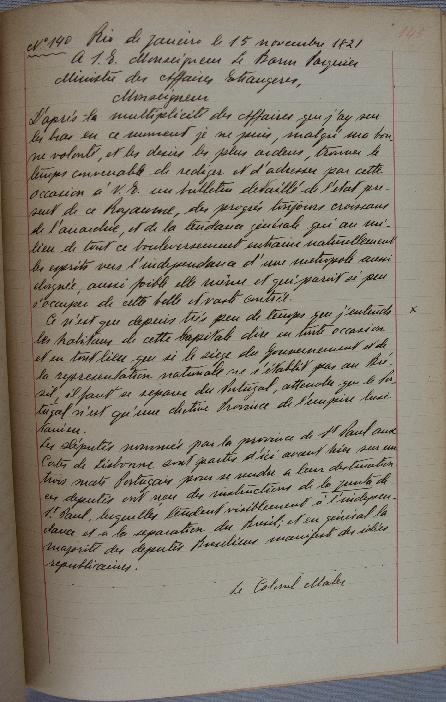 148
Nº 140 Rio de Janeiro le 15 novembre 1821
A S. E. Monseigneur le Baron Pasquier
Ministre des Affaires Etrangeres,
Monseigneur
D'après la multiplicité des Affaires que j'ay sur
les bras en ce moment je ne puis, malgré ma bon-
ne volonté, et les desirs les plus ardens, trouver le
temps convenable de rediger et d'adresser par cette
occasion à V. E. un bulletin detaillé de l'état pre-
sent de ce Royaume, des progrès toujours croissans
de l'anarchie, et de la tendance générale qui au mi-
lieu de tout ce bouleversement entraine naturellement
les esprits vers l'independance d'une metropole aussi
eloignée, aussi foible elle même et qui parait si peu
s'occuper de cette belle et vaste contrée.
Ce n'est que depuis très peu de temps que j'entends
les habitans de cette Capitale dire en toute occasion
et en tout lieu que si le siege du Gouvernement et de
la representation nationale ne s'établit pas au Bré-
sil, il faut se separer du Portugal, attendu que le Por-
tugal n'est qu'une chetive Province de l'empire lusi-
tanien.
Les Députés nommés par la province de St Paul aux
Cortes de Lisbonne sont partis d'ici avant hier sur un
trois mats Portugais pour se rendre a leur destination
ces deputés ont reçu des instructions de la junte de
St Paul, lesquelles tendent visiblement à l'indepen-
dance et a la separation du Bresil, et en général la
majorité des deputés Bresiliens manifest des idées
republicaines.
Le Colonel Maler
x